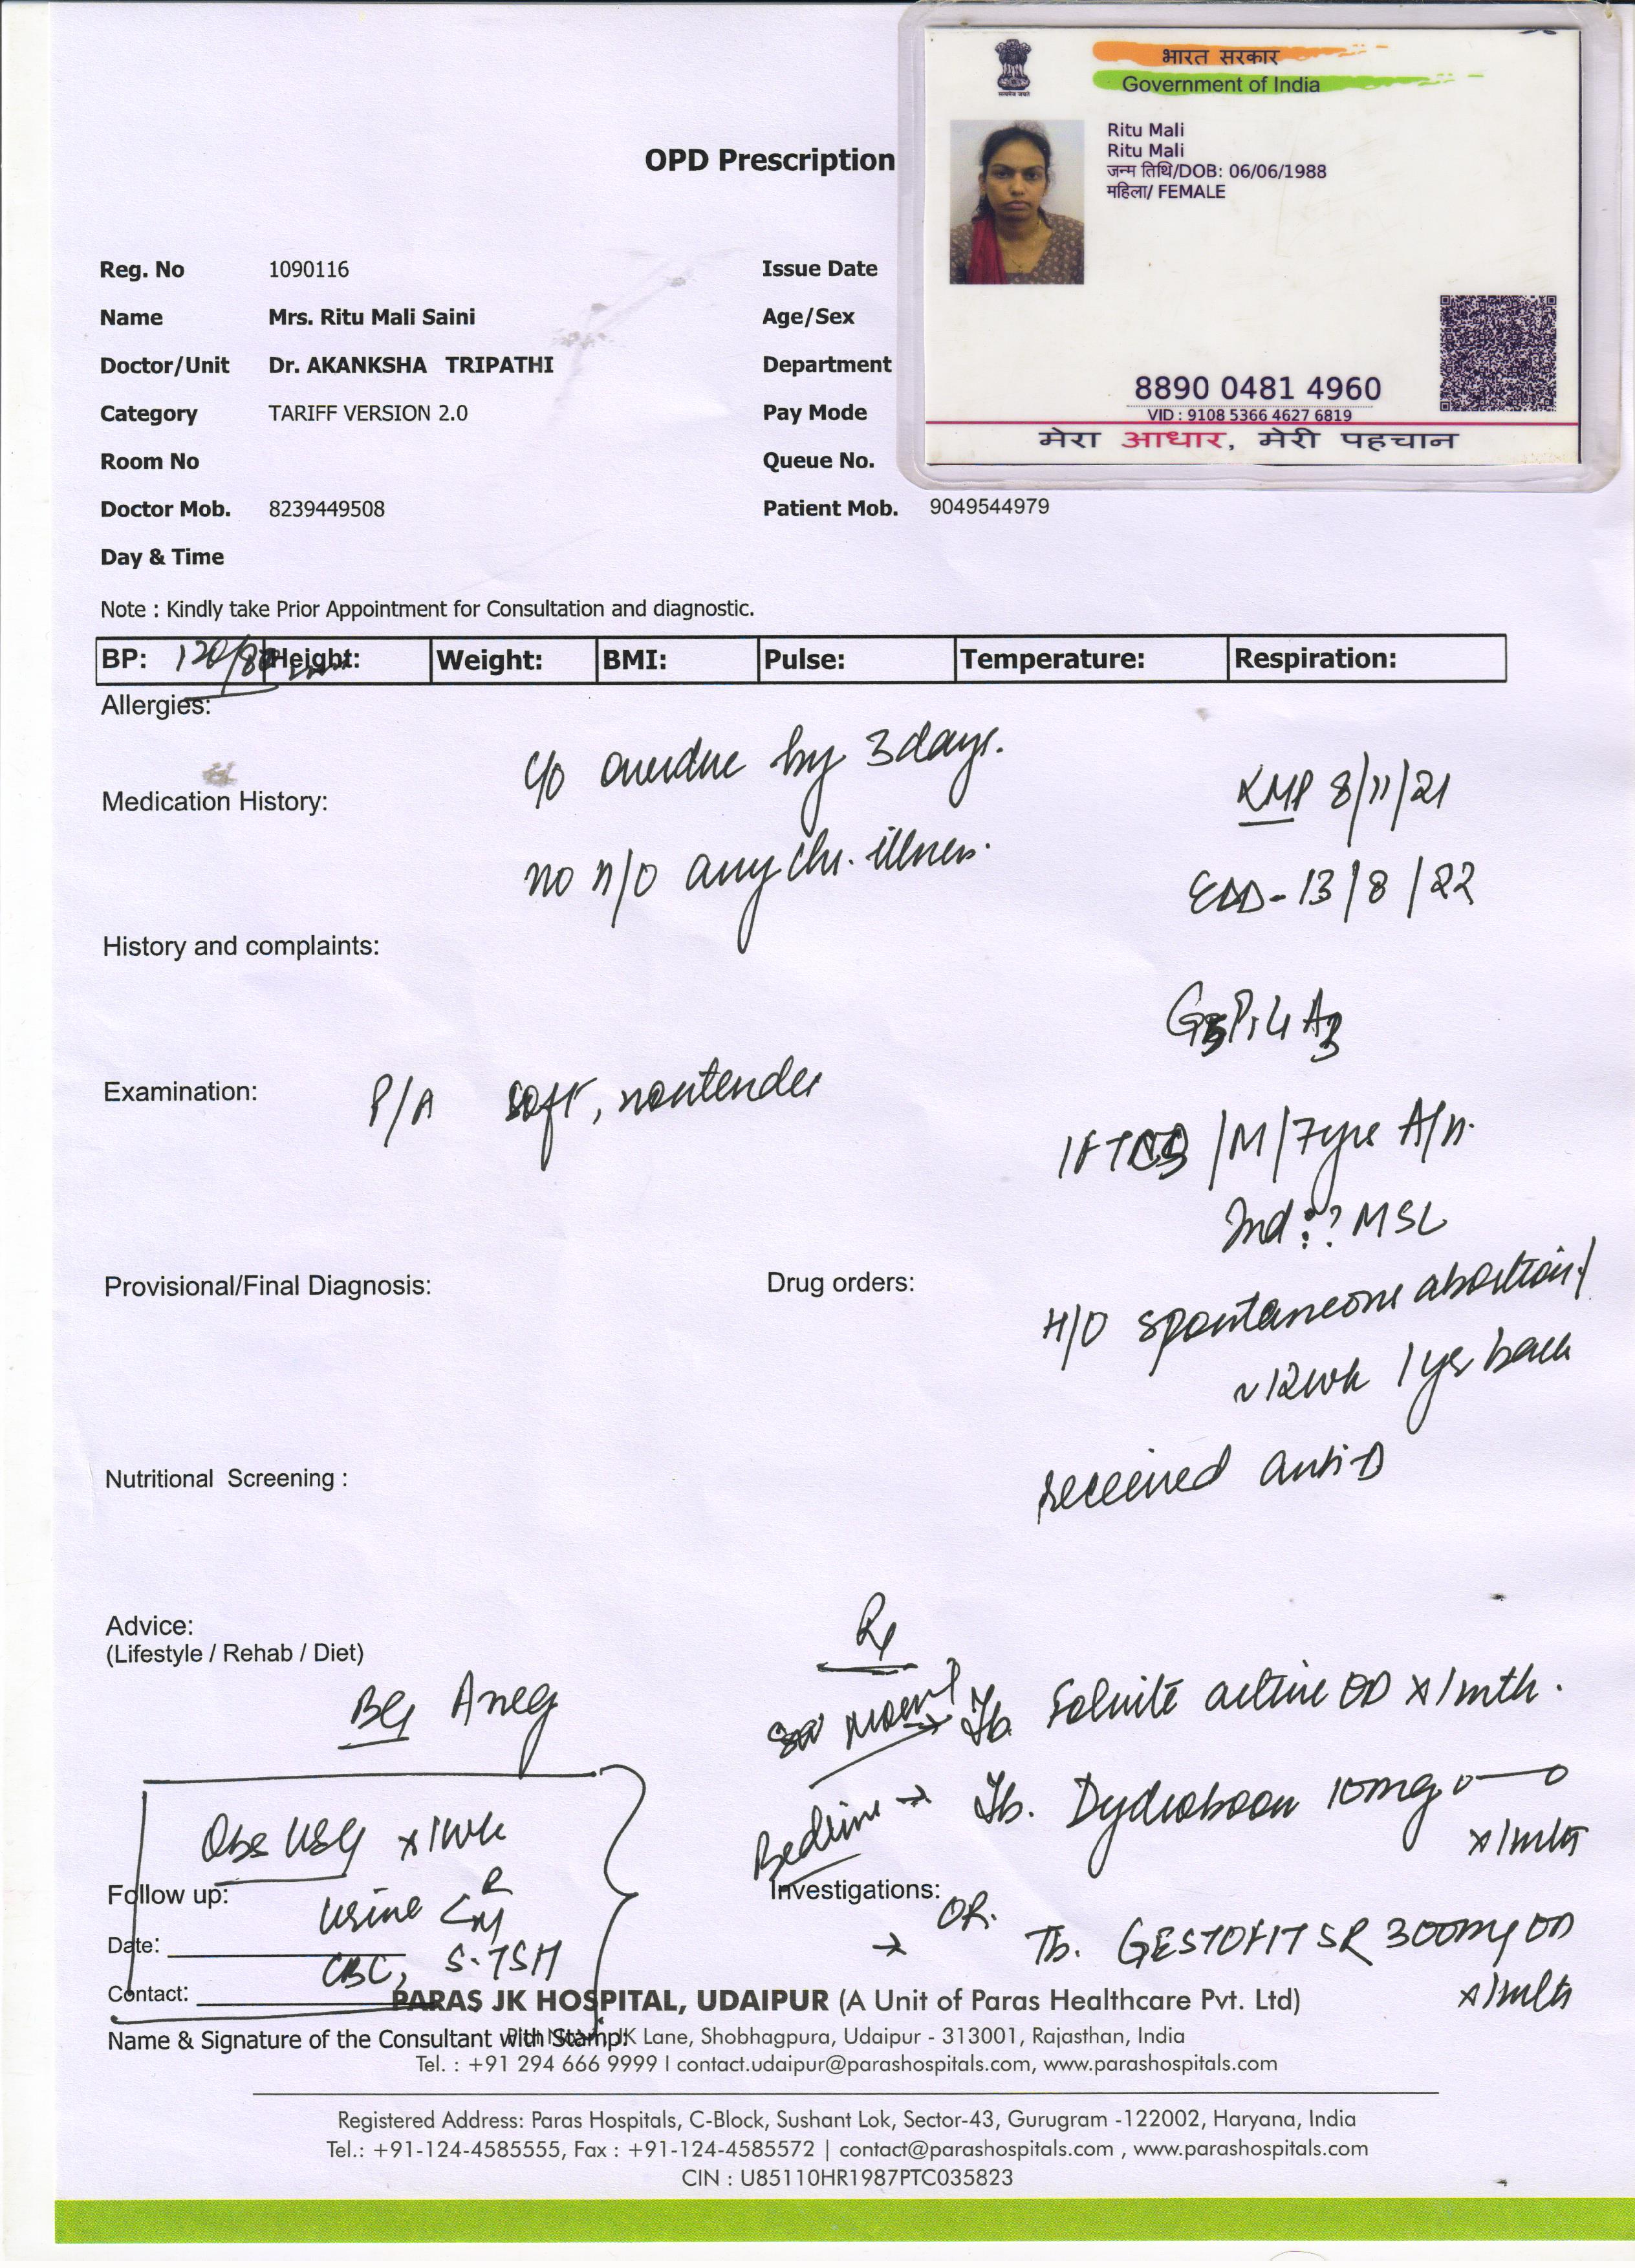 भारत सरकार
Government of India
Ritu Mali
Ritu Mali
जन्म तिथि/DOB: 06/06/1988
महिला/ FEMALE
8890 0481 4960
VID : 9108 5366 4627 6819
मेरा आधार, मेरी पहचान
OPD Prescription
Reg. No 1090116 Issue Date
Name Mrs. Ritu Mali Saini Age/Sex
Doctor/Unit Dr. AKANKSHA TRIPATHI Department
Category TARIFF VERSION 2.0 Pay Mode
Room No Queue No.
Doctor Mob. 8239449508 Patient Mob. 9049544979
Day & Time
Note : Kindly take Prior Appointment for Consultation and diagnostic.
BP: 120/80 Height: Weight: BMI: Pulse: Temperature: Respiration:
Allergies:
c/o overdue by 3 days.
Medication History: LMP 8/11/21
no h/o any chr. illness.
EDD- 13/8/22
History and complaints:
A3
Examination: P/A soft, nontender
/M/7yrs A/H.
Ind : ? MSL
Provisional/Final Diagnosis: Drug orders:
H/O spontaneous abortion/
~12wk 1yr back
Nutritional Screening : received anti-D
Advice:
(Lifestyle / Rehab / Diet)
Rx
BG A neg
Tb. Folvite active OD x 1 mth.
→ Tb. 10mg 0—0
x 1 mth
Obs USG x 1wk
Follow up: urine R/M Investigations:
OR.
Date:
→ Tb. GESTOFIT SR 300mg OD
x 1 mth
CBC, S. TSH
Contact:
PARAS JK HOSPITAL, UDAIPUR (A Unit of Paras Healthcare Pvt. Ltd)
Name & Signature of the Consultant with Stamp:
JK Lane, Shobhagpura, Udaipur - 313001, Rajasthan, India
Tel. : +91 294 666 9999 I contact.udaipur@parashospitals.com, www.parashospitals.com
Registered Address: Paras Hospitals, C-Block, Sushant Lok, Sector-43, Gurugram -122002, Haryana, India
Tel.: +91-124-4585555, Fax : +91-124-4585572 | contact@parashospitals.com , www.parashospitals.com
CIN : U85110HR1987PTC035823